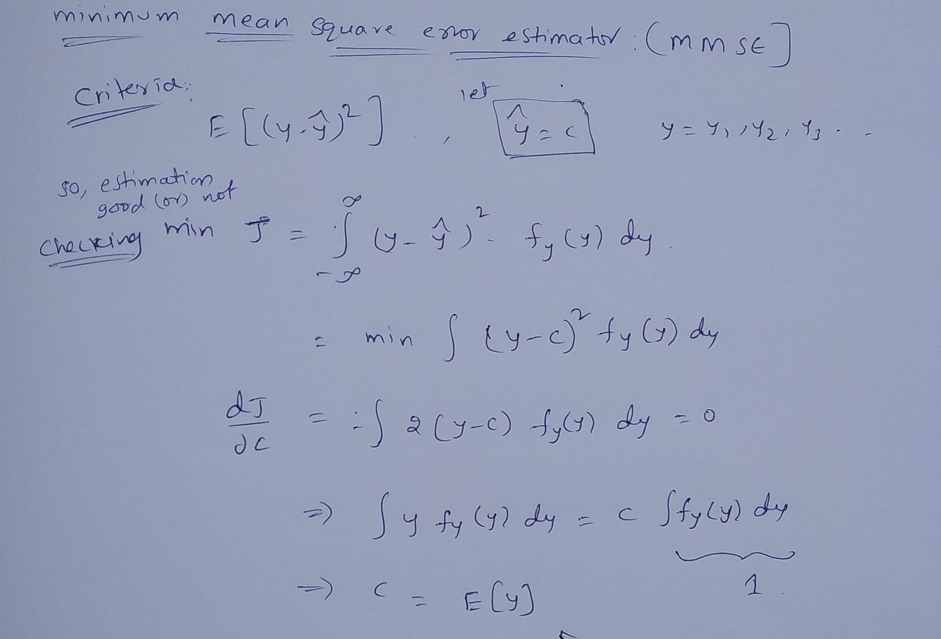 minimum mean square error estimator : (MMSE]
criteria:
E[(y-ŷ)²] , let ŷ = c y = y₁, y₂, y₃ . .
so, estimation
good (or) not
checking min J = ∫_{-∞}^{∞} (y-ŷ)². f_y(y) dy.
= min ∫ (y-c)² f_y(y) dy
dJ/dc = -∫ 2(y-c) f_y(y) dy = 0
⇒ ∫ y f_y(y) dy = c ∫ f_y(y) dy
1
⇒ c = E[y]